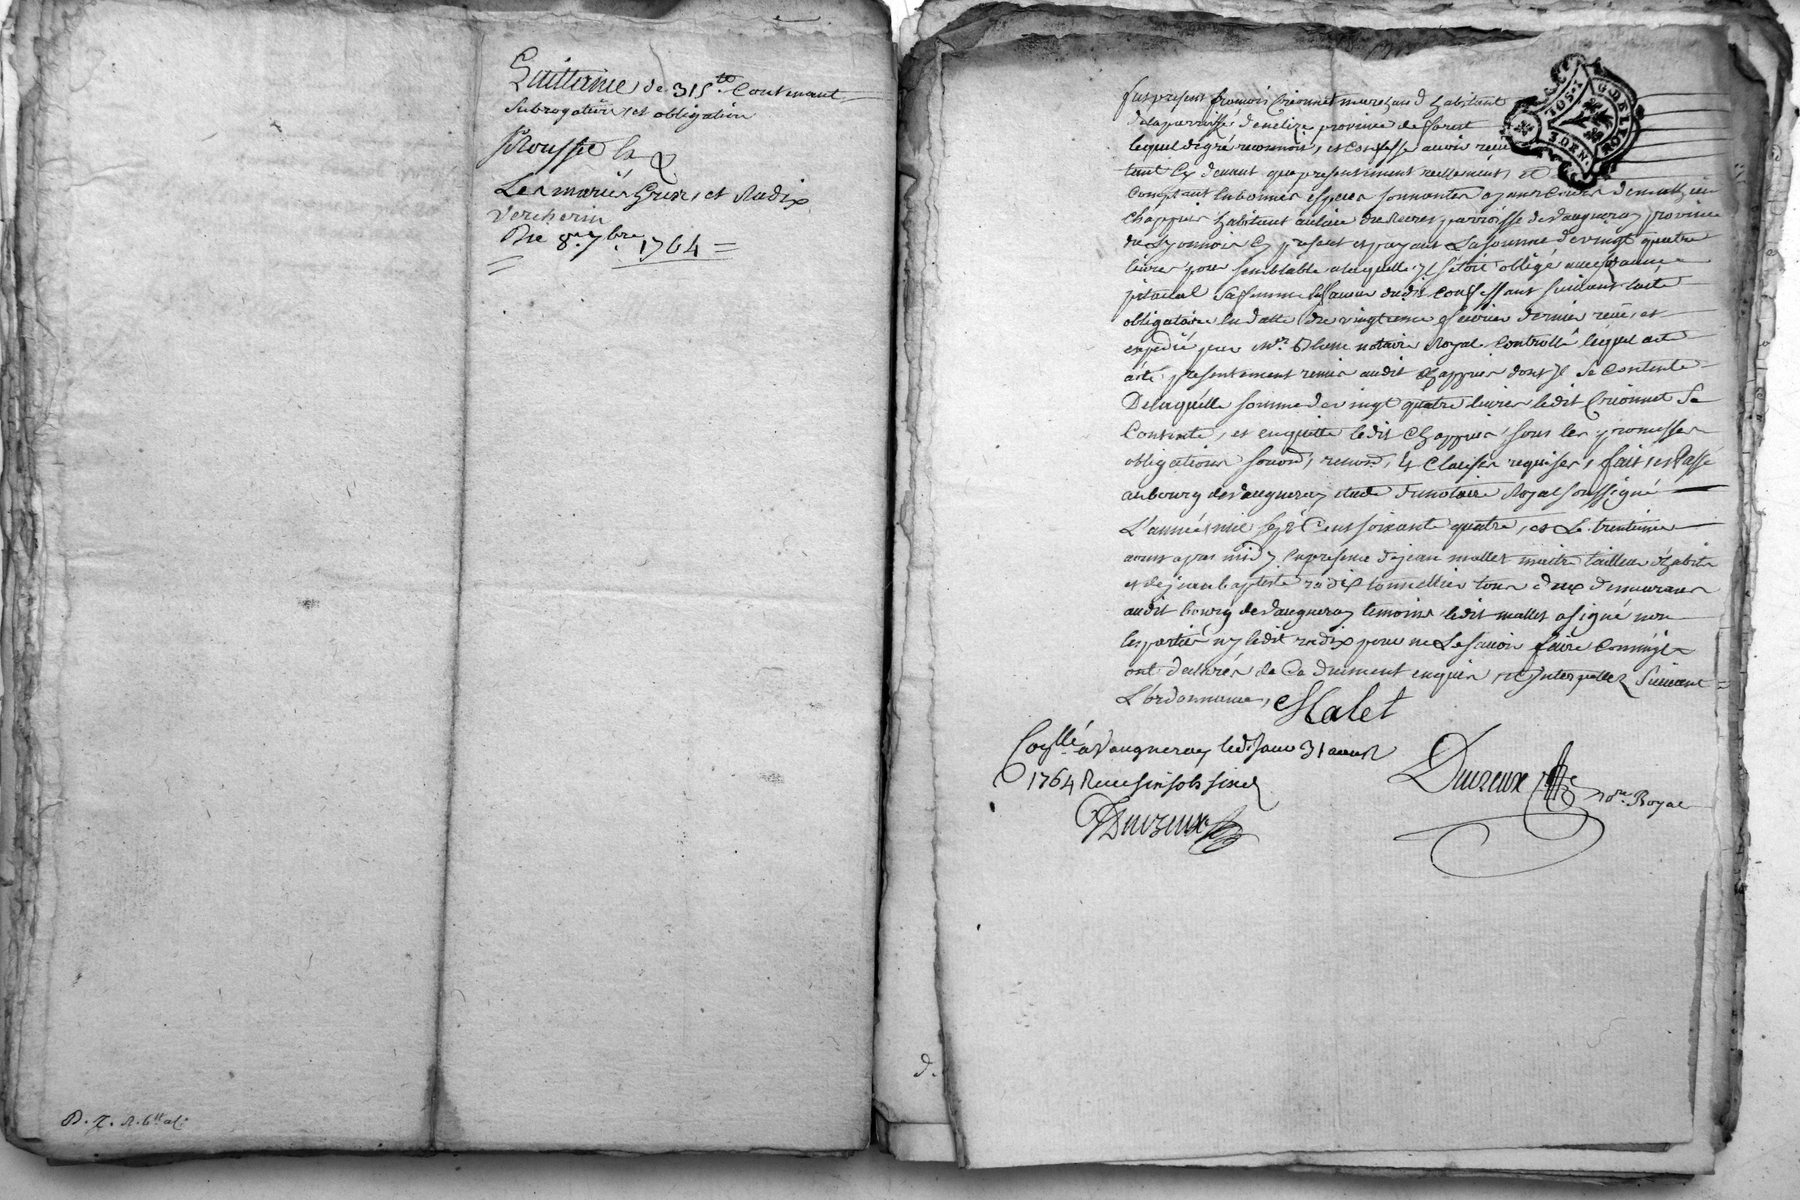 Quittance de 315.tt Contenant
Subrogation, et obligation
Rousset
Les mariés Grize, et Radix
Vercherin
Du 8.e 7bre. 1764 =
D. Z. R. 6tt
GÉNÉ. DE LION
3 DEN.
fut present francois Crionnet marchand habitant
de la parroisse province de forest
lequel de gré reconnoit, et confesse avoir reçeu
tant cy devant que presentement reellement, et
comptant en bonnes especes sonnantes ayant cours de mathieu
Chappuis habitant au lieu parroisse de Vaugneray province
du Lyonnois cy present et payant La somme de vingt quatre
livres pour semblable a laquelle il s'étoit obligé avec
sa femme en faveur dudit confessant suivant l'acte
obligatoire en datte du vingtieme fevrier dernier reçu, et
expedié par Me. notaire Royal controllé lequel acte
a été presentement remis audit Chappuis dont il se contente
De laquelle somme de vingt quatre livres ledit Crionnet se
Contente, et en quitte ledit Chappuis sous les promesses
obligations renon. & clauses requises, fait, et Passé
au bourg de Vaugneray etude du notaire Royal soussigné
L'année mil sept Cent soixante quatre, et Le trentieme
aoust apres midy en presence de jean mallet maitre tailleur d'habits
et de jean baptiste radix tonnellier tous deux demeurans
audit bourg de Vaugneray temoins ledit mallet a signé non
les parties ny ledit radix pour ne Le savoir faire comme ils
ont declarés de Ce duement enquis, et interpellés suivant
L'ordonnance, Malet
Conllé a Vaugneray led. jour 31 aoust
1764 Reçu six sols six d.
Duvzeux Duvzeux nore. Royal